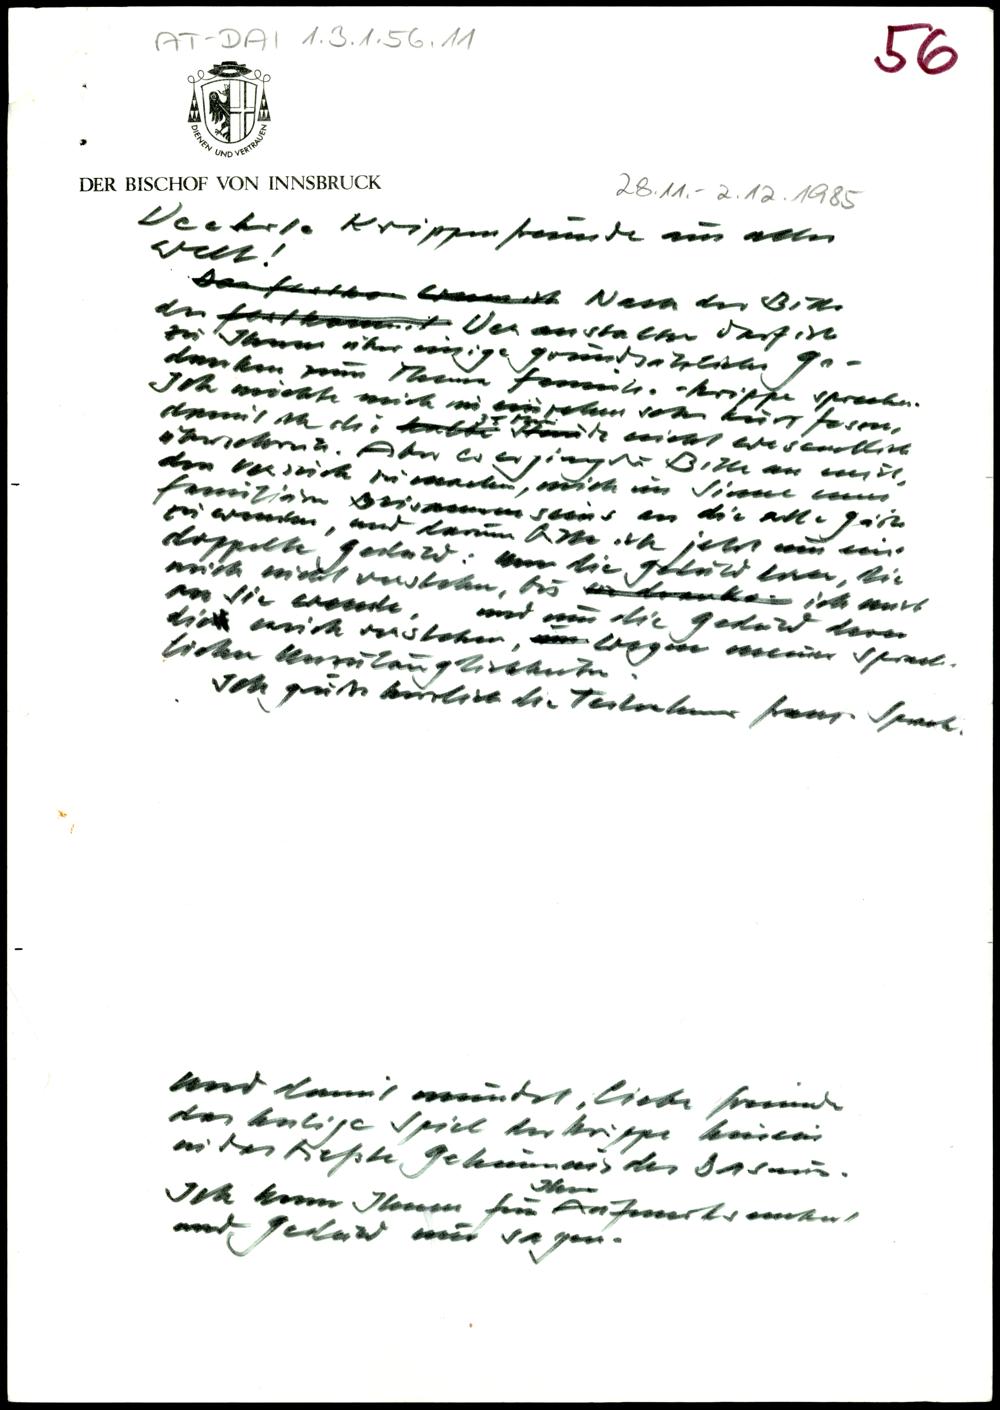 AT-DAI 1.3.1.56.11
56
DIENEN UND VERTRAUEN
DER BISCHOF VON INNSBRUCK
28.11.-2.12.1985
Verehrte Krippenfreunde aus aller
Welt!
Nach der Bitte
der Veranstalter darf ich
zu Ihnen über einige grundsätzliche Ge-
danken zum Thema Familie - Krippe sprechen.
Ich möchte mich sehr kurz fassen,
damit ich die nicht wesentlich
überziehen. Aber es erging die Bitte an mich,
den Versuch zu machen, mich im Sinne eines
familiären Beisammenseins an die alle Gäste
zu wenden, und darum bitte ich jetzt um eine
doppelte Geduld: um die Geduld derer, die
mich nicht verstehen, bis ich mich
an Sie wende, und um die Geduld derer
die mich verstehen, wegen meiner sprach-
lichen Unzulänglichkeiten.
Ich grüße herzlich die Teilnehmer franz. Sprach.
und damit mündet, liebe Freunde
das heilige Spiel der Krippe hinein
in das tiefste Geheimnis des Daseins.
Ihre
Ich kann Ihnen für Aufmerksamkeit
und Geduld nur sagen.